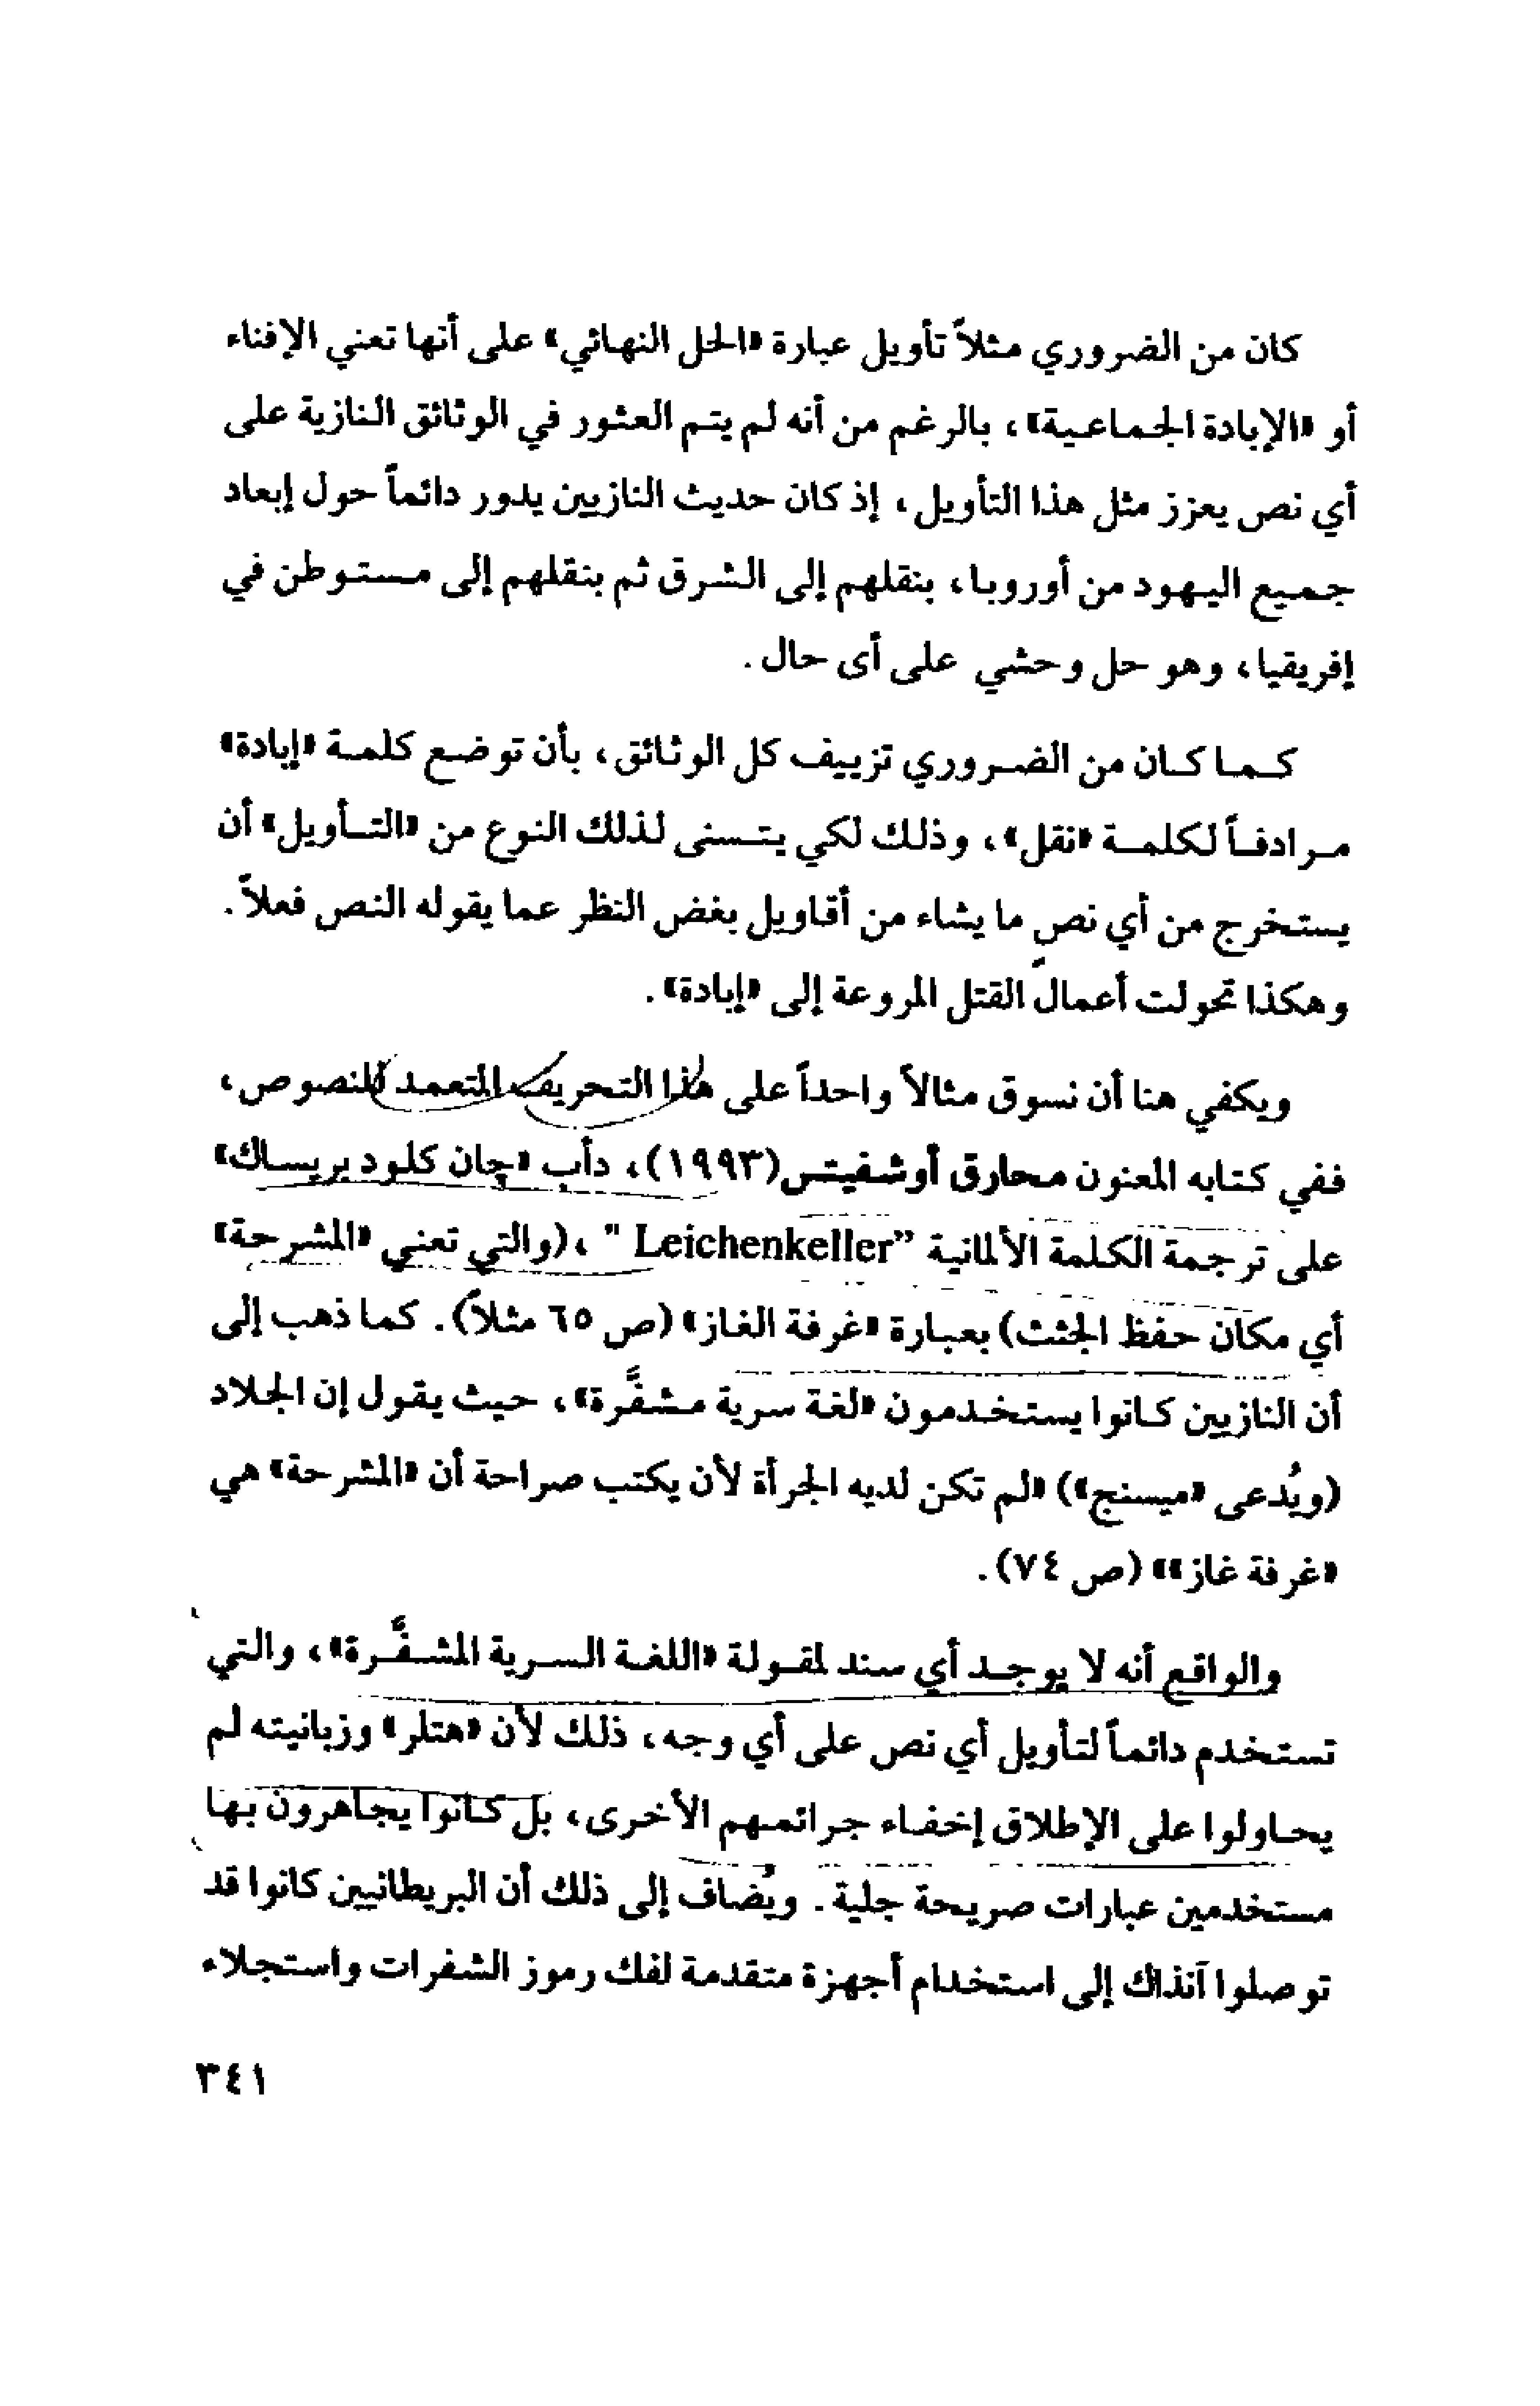 كان من الضروري مثلاً تأويل عبارة «الحل النهائي» على أنها تعني الإفناء
أو «الإبادة الجماعية»، بالرغم من أنه لم يتم العثور في الوثائق النازية على
أي نص يعزز مثل هذا التأويل، إذ كان حديث النازيين يدور دائماً حول إبعاد
جميع اليهود من أوروبا، بنقلهم إلى الشرق ثم بنقلهم إلى مستوطن في
إفريقيا، وهو حل وحشي على أى حال.
كما كان من الضروري تزييف كل الوثائق، بأن توضع كلمة «إبادة»
مرادفاً لكلمة «نقل»، وذلك لكي يتسنى لذلك النوع من «التأويل» أن
يستخرج من أي نصٍ ما يشاء من أقاويل بغض النظر عما يقوله النص فعلاً.
وهكذا تحولت أعمال القتل المروعة إلى «إبادة».
ويكفي هنا أن نسوق مثالاً واحداً على هذا التحريف المتعمد للنصوص،
ففي كتابه المعنون محارق أوشفيتس(١٩٩٣)، دأب «چان كلود بريساك»
على ترجمة الكلمة الألمانية ”Leichenkeller "، (والتي تعني «المشرحة»
أي مكان حفظ الجثث) بعبارة «غرفة الغاز» (ص ٦٥ مثلاً). كما ذهب إلى
أن النازيين كانوا يستخدمون «لغة سرية مشفَّرة»، حيث يقول إن الجلاد
(ويُدعى «ميسنج») «لم تكن لديه الجرأة لأن يكتب صراحة أن «المشرحة» هي
«غرفة غاز»» (ص ٧٤).
والواقع أنه لا يوجد أي سند لمقولة «اللغة السرية المشفَّرة»، والتي
تستخدم دائماً لتأويل أي نص على أي وجه، ذلك لأن «هتلر» وزبانيته لم
يحاولوا على الإطلاق إخفاء جرائمهم الأخرى، بل كانوا يجاهرون بها
مستخدمين عبارات صريحة جلية. ويُضاف إلى ذلك أن البريطانيين كانوا قد
توصلوا آنذاك إلى استخدام أجهزة متقدمة لفك رموز الشفرات واستجلاء
٣٤١